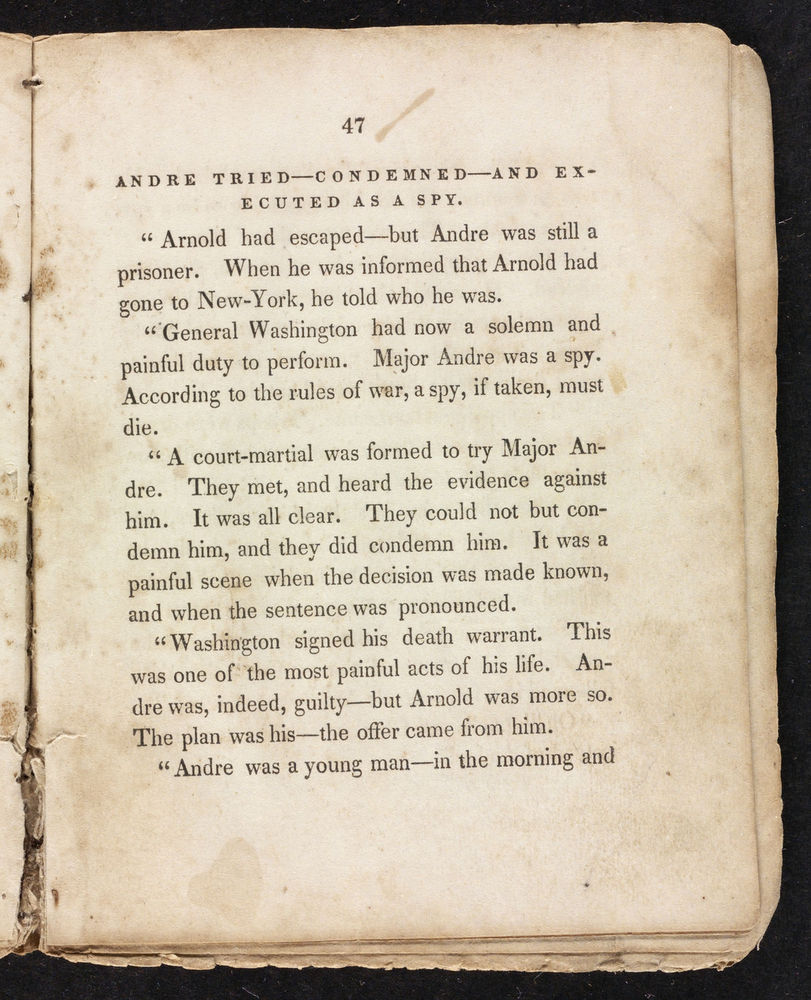 47
ANDRE TRIED—CONDEMNED—AND EX-
ECUTED AS A SPY.
“ Arnold had escaped—but Andre was still a
prisoner. When he was informed that Arnold had
gone to New-York, he told who he was.
“ General Washington had now a solemn and
painful duty to perform. Major Andre was a spy.
According to the rules of war, a spy, if taken, must
die.
“ A court-martial was formed to try Major An-
dre. They met, and heard the evidence against
him. It was all clear. They could not but con-
demn him, and they did condemn him. It was a
painful scene when the decision was made known,
and when the sentence was pronounced.
“ Washington signed his death warrant. This
was one of the most painful acts of his life. An-
dre was, indeed, guilty—but Arnold was more so.
The plan was his—the offer came from him.
“ Andre was a young man—in the morning and